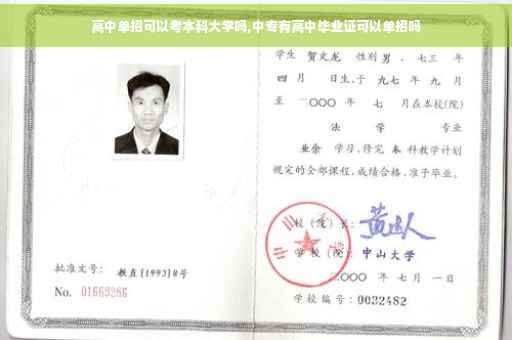 高中单招可以考本科大学吗,中专有高中毕业证可以单招吗
学生 贺文龙 性别 男，七三 年
四 月 日生,于 九七 年 九 月
至 二〇〇〇 年 七 月在本校(院)
法 学 专业
业余 学习,修完 本 科教学计划
规定的全部课程,成绩合格,准予毕业。
校（院）长:
学 校（院）: 中山大学
二〇〇〇 年 七 月 一 日
学校编号: 0032482
批准文号: 教直[1993]8号
No. 01669286